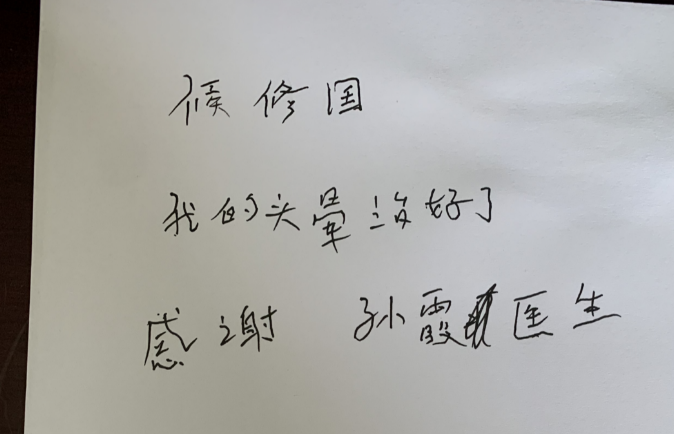 候修国
我的头晕治好了
感谢 孙霞医生